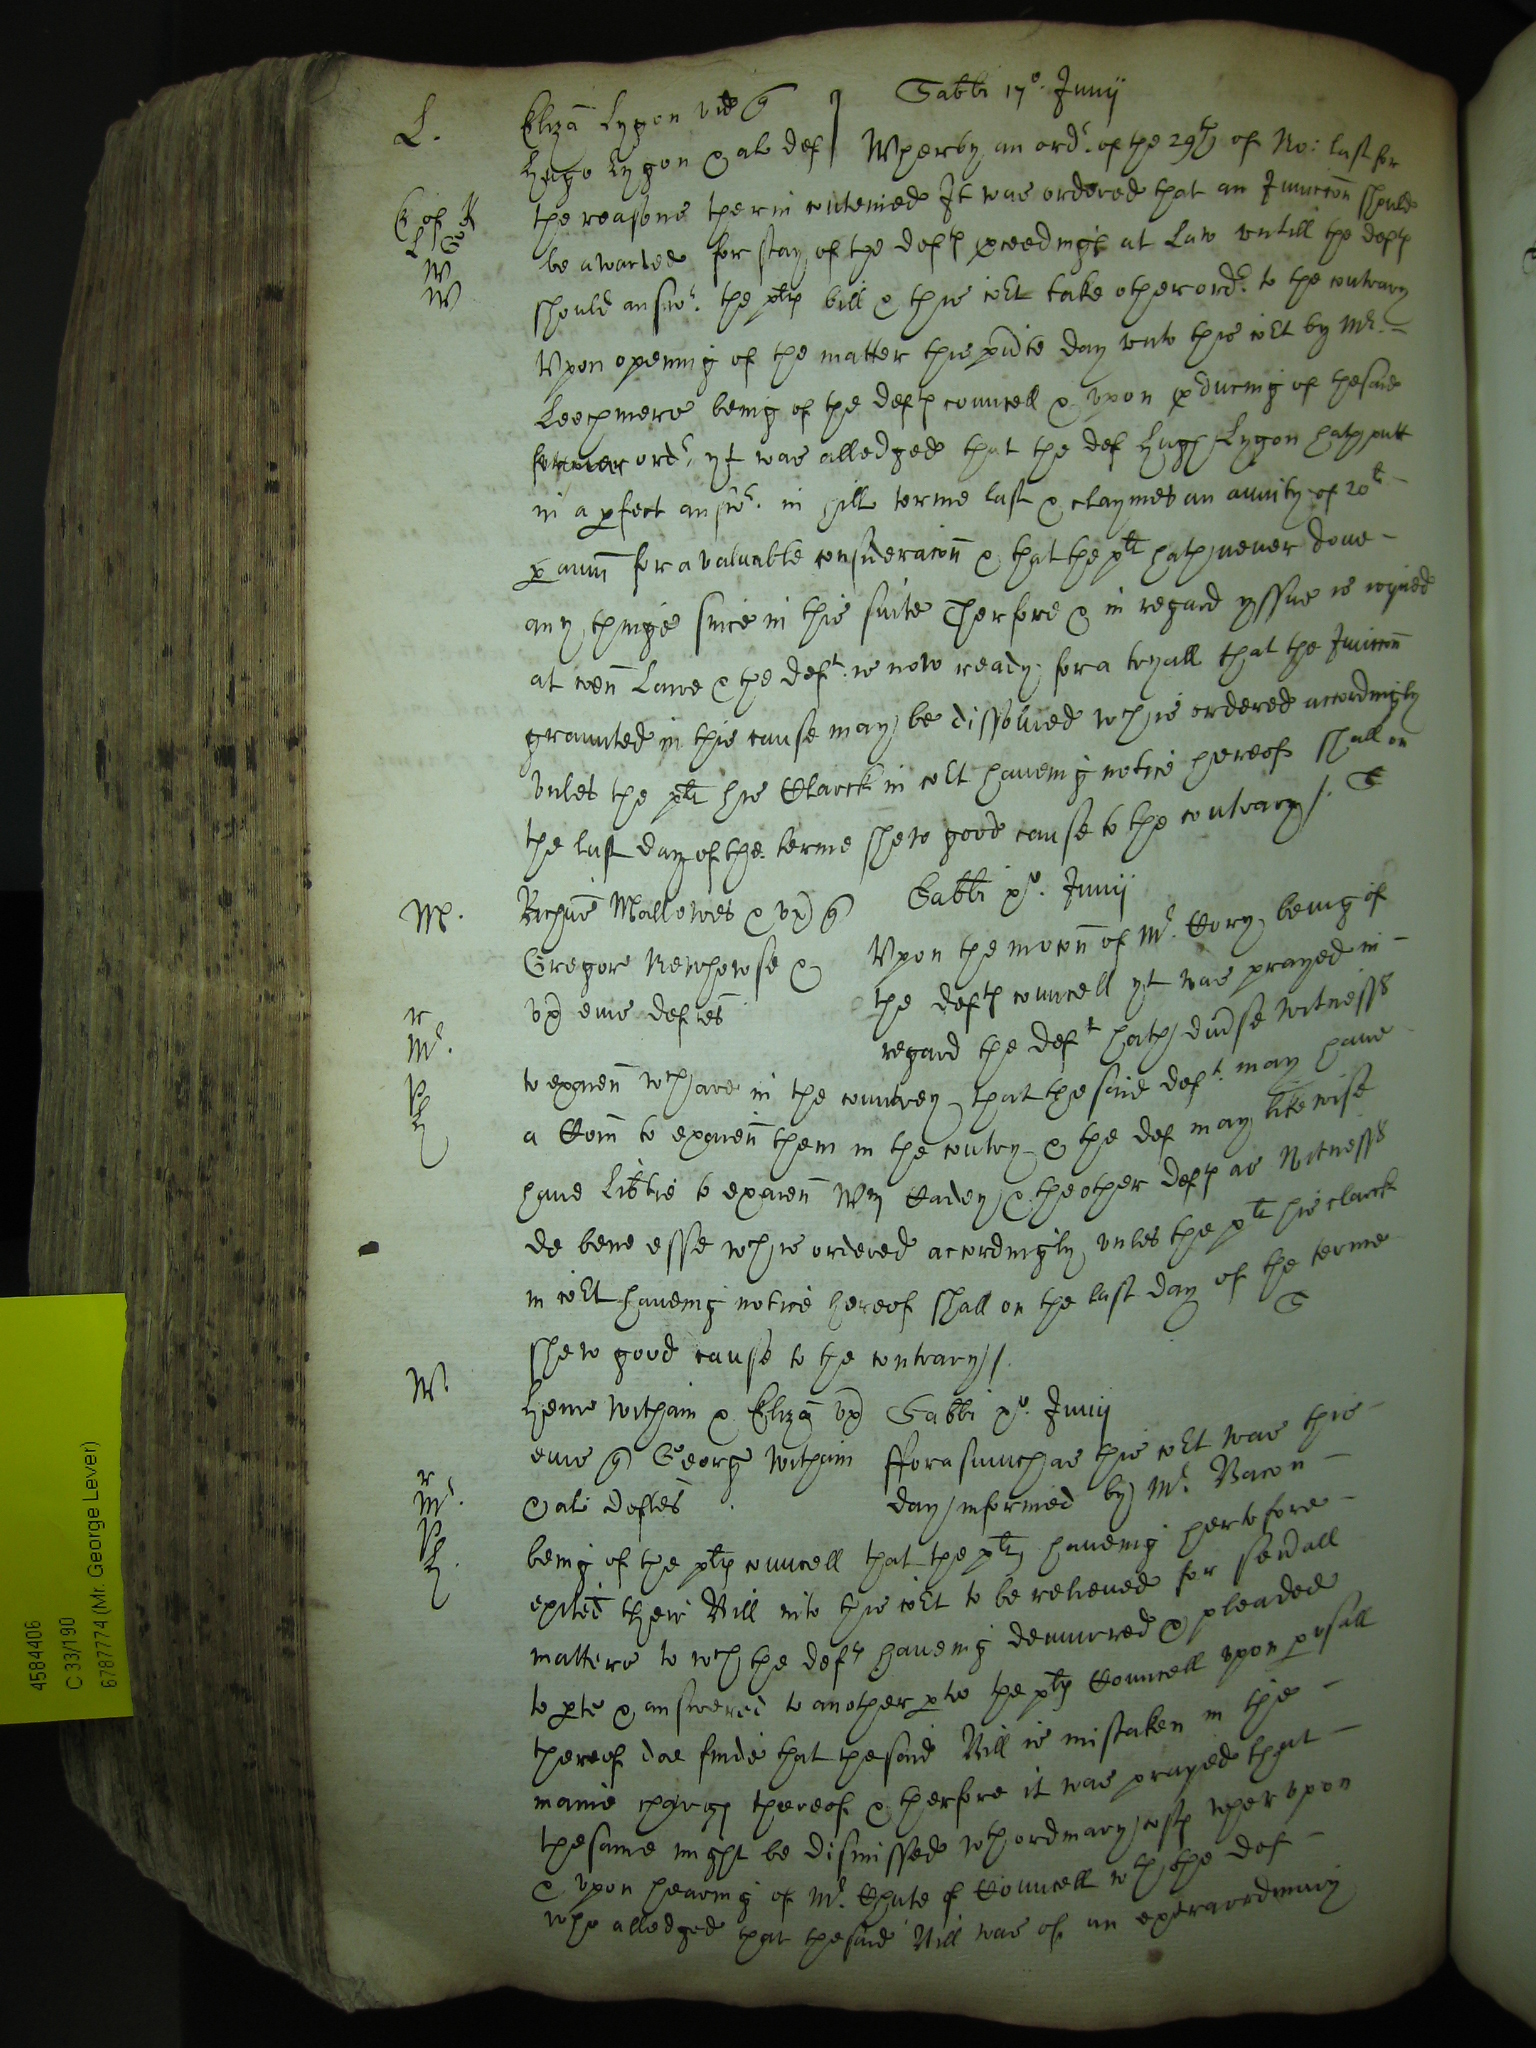 Sabbti 17o. Junij
L. Eliza Lygon vid q
Hugo Lygon & al def Wherby an ordr. of the 29th of No: last for
the reasons therin conteined It was ordered that an Iniuccon should
be awarded for stay of the defts proceedings at Law vntill the defts
should answr. the plts bill & this cort take other ordr. to the contrary
Vpon opening of the matter this pnte day vnto this cort by Mr.
Leechmere being of the defts councell & vpon producing of the said
former ordr. yt was alledged that the def Hugh Lygon hath putt
in a perfect answr. in Hill terme last & claymes an anuity of 20l
per ann for a valuable consideracon & that the plt hath neuer done
any thinge since in this suite Therfore & in regard yssue is ioyned
at coen Lawe & the deft. is now ready for a tryall that the Iniuccon
graunted in this cause may be dissolued wch is ordered accordingly
vnles the plt his Clarck in cort haueing notice hereof shall on
the last day of the terme shew good cause to the contrary /.
M. Richus Mallowes & vx q Sabbti xo. Junij
Gregore Newhowse & Vpon the mocon of Mr. Cory being of
vx eius deftes the defts councell yt was prayed in
regard the deft hath diuse witness
to examen wch are in the countrey that the said deft. may haue
a Com to examen them in the contry & the def may likewise
haue libtie to examen Wm & the other defts as witness
de bene esse wch is ordered accordingly vnles the plt his clarck
in cort haueing notice hereof shall on the last day of the terme
shew good cause to the contrary /.
W. Henr Witham & Eliza vx Sabbti xo. Junij
eius q George Witham fforasmuch as this cort was this
& ali deftes day informed by Mr. Bacon
being of the plts councell that the plts haueing hertofore
exited their Bill into this cort to be releiued for seuall
matters to wch the defts haueing demurred & pleaded
to pte & answered to another pte the plts Councell vpon pusall
thereof doe finde that the said Bill is mistaken in the
maine charge thereof & therfore it was prayed that
the same might be dismissed wth ordinary costs wher vpon
& vpon hearing of Mr. Chute of Councell wth the def
who alledged that the said Bill was of an extraordinary
4584406
C 33/190
6787774 (Mr. George Lever)